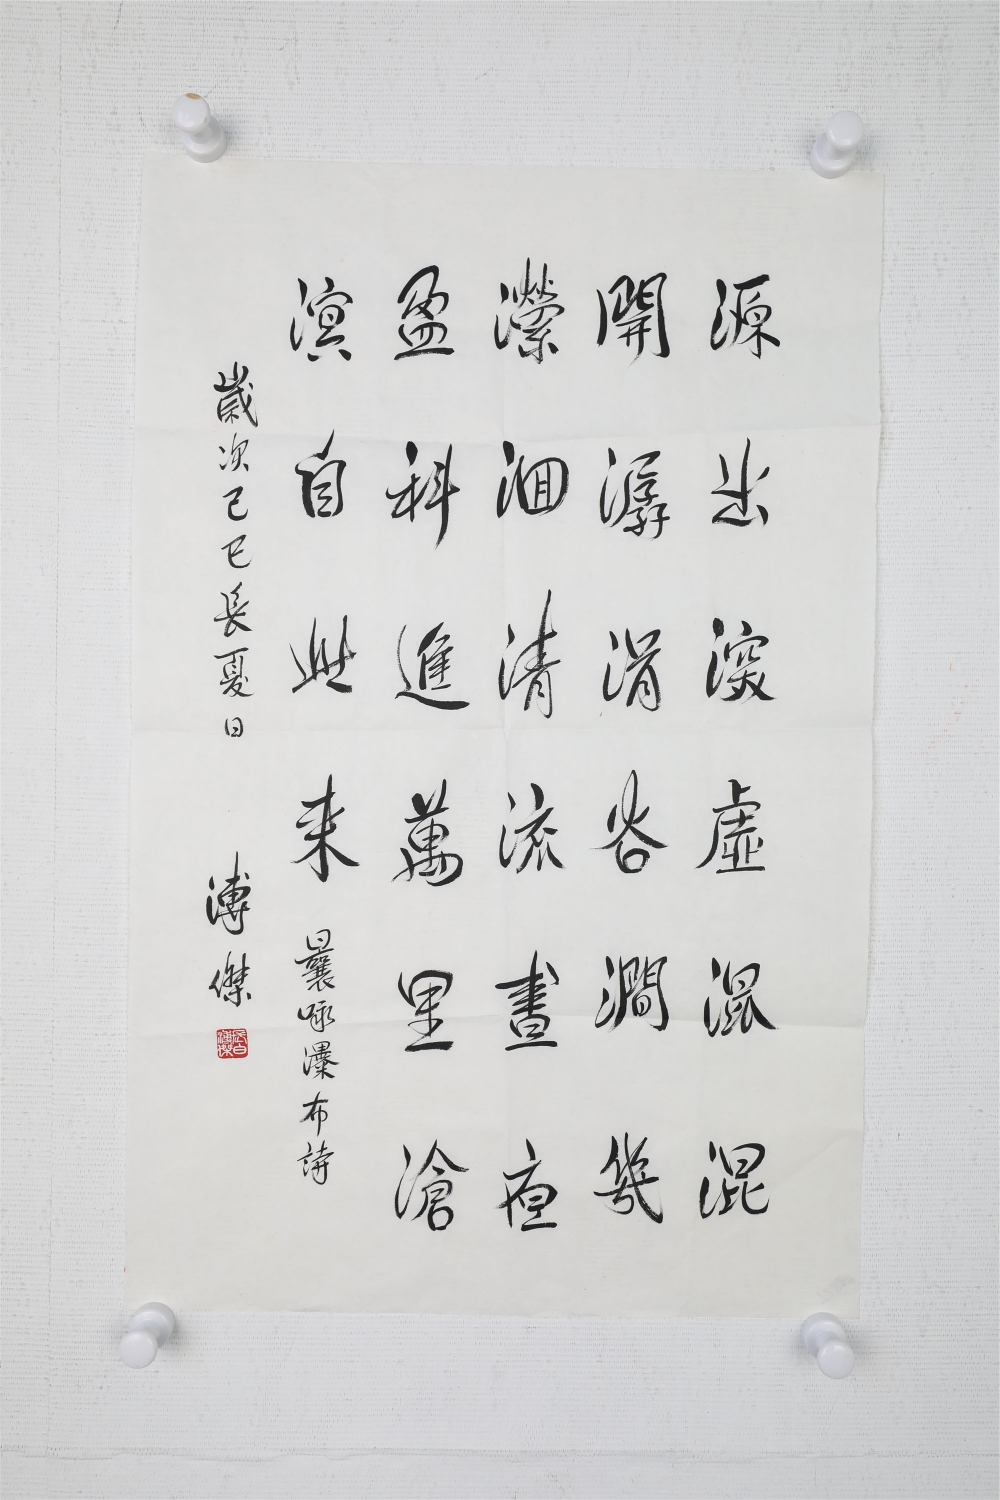 源出深虛混混
開潺涓谷澗幾
瀠洄清流晝夜
盈科進萬里滄
溟自此來 曩咏瀑布詩
歲次己巳長夏日 溥傑